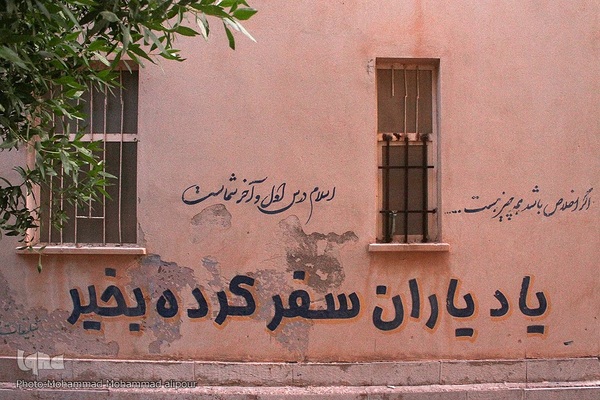 اسلام درس اول و آخر شماست
اگر اخلاص باشد همه چیز هست.....
یاد یاران سفر کرده بخیر
تبلیغات
iqna
Photo:Mohammad Mohammad alipour